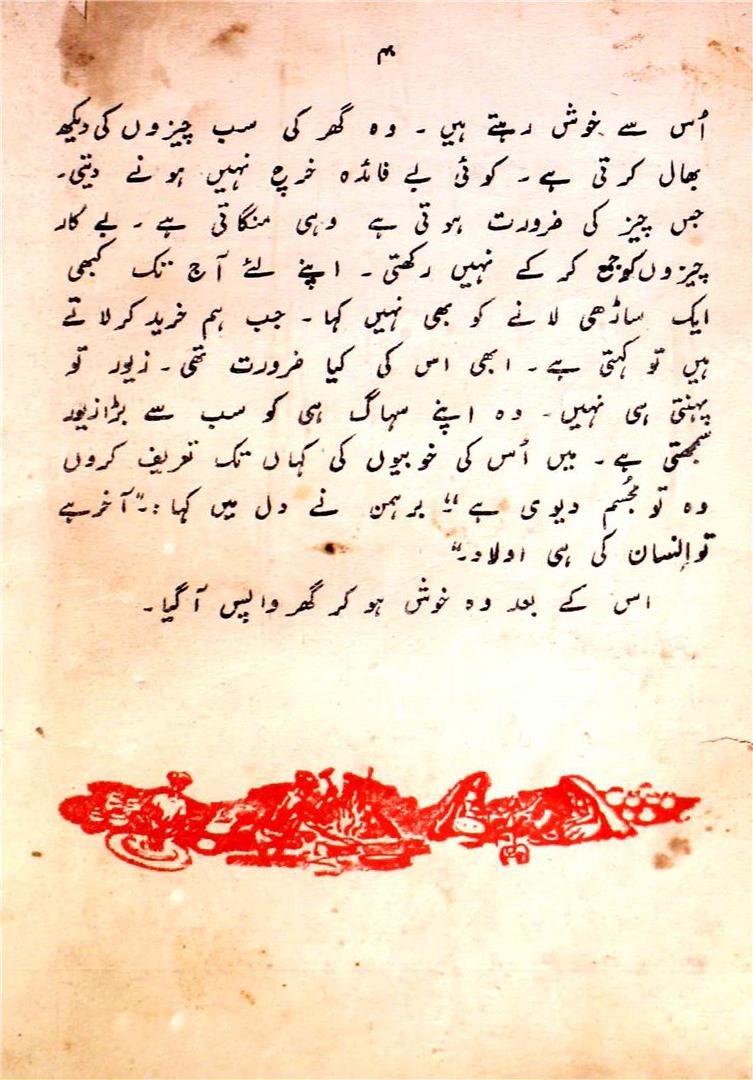 ۴
اُس سے خوش رہتے ہیں ۔ وہ گھر کی سب چیزوں کی دیکھ
بھال کرتی ہے ۔ کوئی بے فائدہ خرچ نہیں ہونے دیتی ۔
جس چیز کی ضرورت ہوتی ہے وہی منگاتی ہے ۔ بے کار
چیزوں کو جمع کر کے نہیں رکھتی ۔ اپنے لئے آج تک کبھی
ایک ساڑھی لانے کو بھی نہیں کہا ۔ جب ہم خرید کر لاتے
ہیں تو کہتی ہے ۔ ابھی اس کی کیا ضرورت تھی ۔ زیور تو
پہنتی ہی نہیں ۔ وہ اپنے سہاگ ہی کو سب سے بڑا زیور
سمجھتی ہے ۔ میں اُس کی خوبیوں کی کہاں تک تعریف کروں
وہ تو مجُسم دیوی ہے“۔ برہمن نے دل میں کہا :۔”آخر ہے
تو اِنسان کی ہی اولاد۔“
اس کے بعد وہ خوش ہو کر گھر واپس آگیا ۔